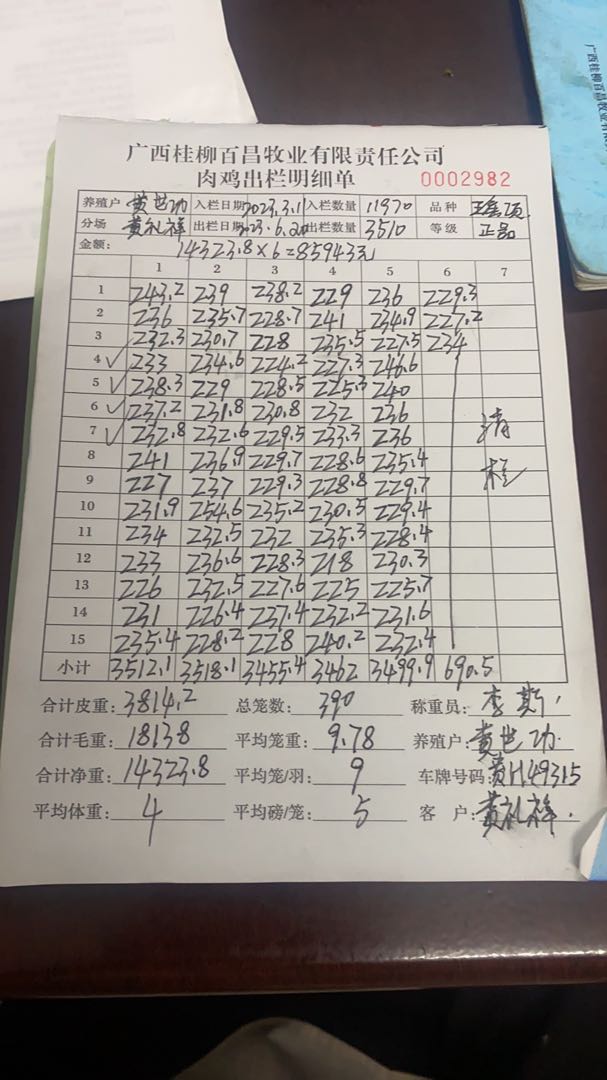 广西桂柳百昌牧业有限责任公司
肉鸡出栏明细单 0002982
养殖户 黄世功 入栏日期 2023.3.11 入栏数量 11970 品种
分场 黄礼祥 出栏日期 2023.6.20 出栏数量 3510 等级 正品
金额: 14323.8×6=85943元
1 2 3 4 5 6 7
1 243.2 239 238.2 229 236 229.3
2 236 235.7 228.7 241 234.9 227.2
3 232.3 230.7 228 235.5 227.5 234
4 233 234.6 224.2 227.3 246.6
5 238.3 229 228.5 225.3 240
6 237.2 231.8 230.8 232 236
7 232.8 232.6 229.5 233.3 236 清
8 241 236.9 229.7 228.6 235.4
9 227 237 229.3 228.8 229.7
10 231.9 254.6 235.2 230.5 229.4
11 234 232.5 232 235.3 228.4
12 233 236.6 228.3 218 230.3
13 226 232.5 227.6 225 225.7
14 231 226.4 237.4 232.2 231.6
15 235.4 228.2 228 240.2 232.4
小计 3512.1 3518.1 3455.4 3462 3499.9 690.5
合计皮重: 3814.2 总笼数: 390 称重员: 李斯
合计毛重: 18138 平均笼重: 9.78 养殖户: 黄世功
合计净重: 14323.8 平均笼/羽: 9 车牌号码: 贵H49315
平均体重: 4 平均磅/笼: 5 客户: 黄礼祥
广西桂柳百昌牧业有限